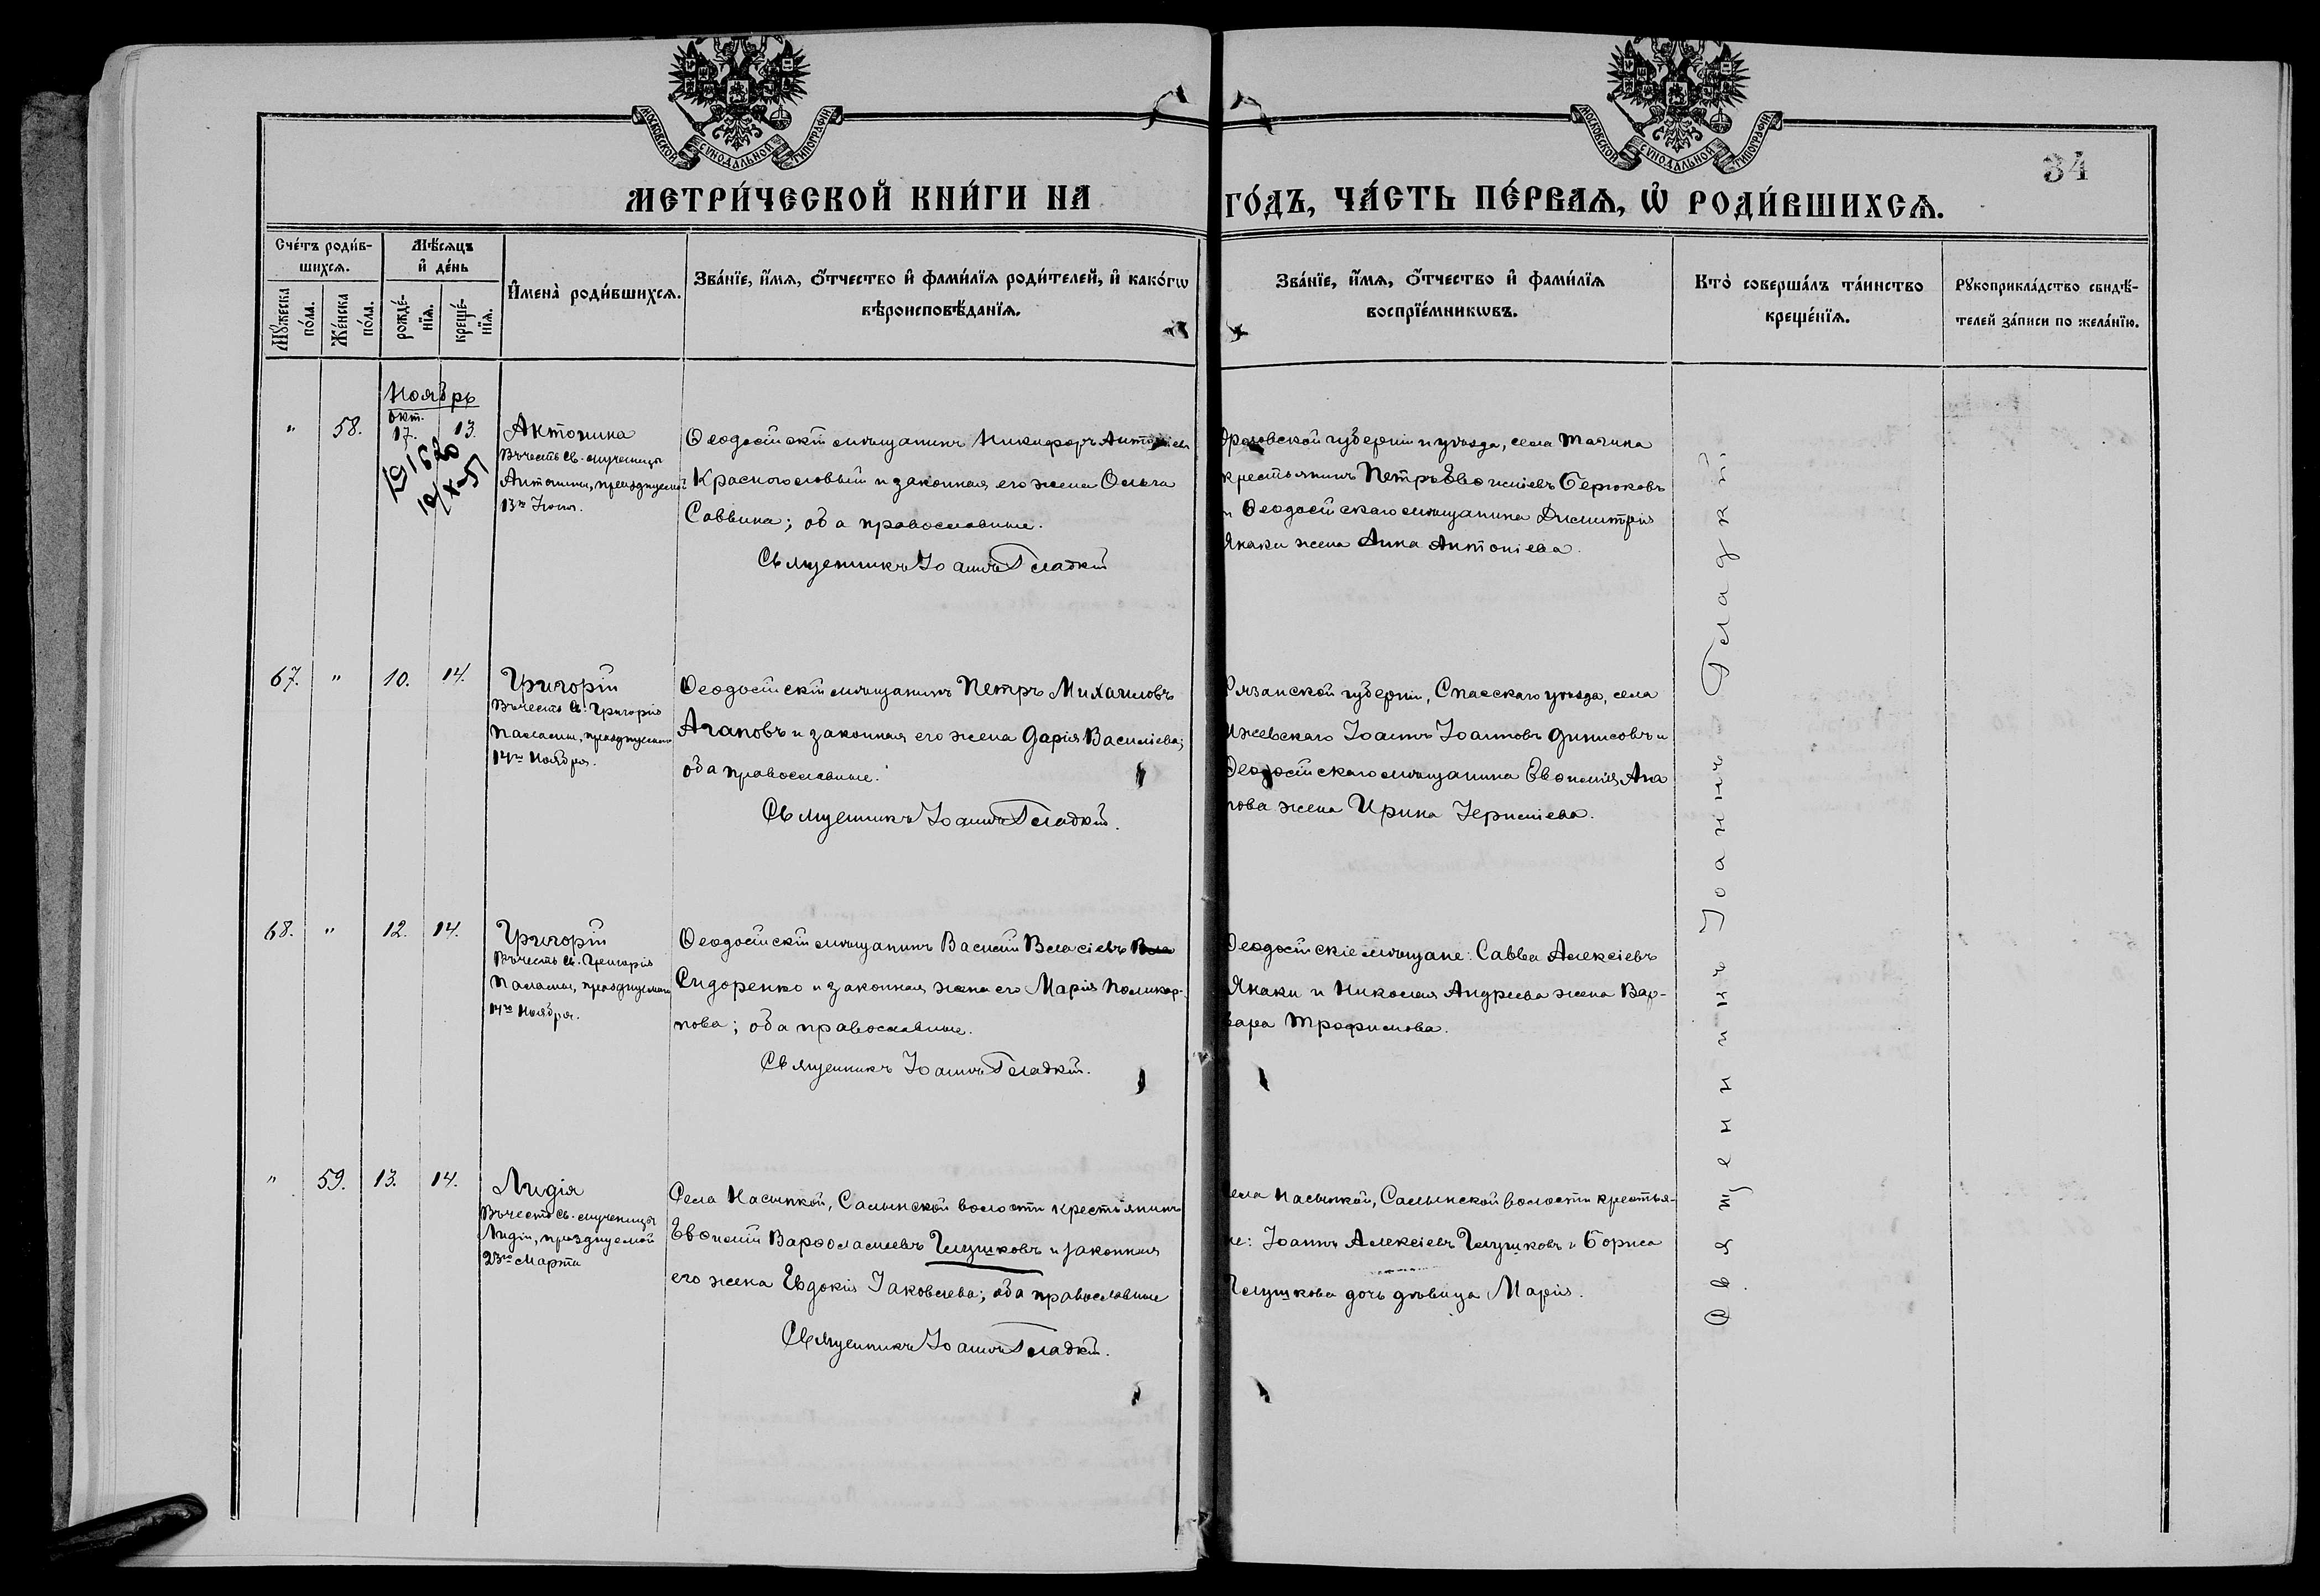 МОСКОВСКОЙ СѴНОДАЛЬНОЙ ТИПОГРАФІИ
МОСКОВСКОЙ СѴНОДАЛЬНОЙ ТИПОГРАФІИ
34
МЕТРИ́ЧЕСКОЙ КНИ́ГИ НА
ГО́ДЪ, ЧА́СТЬ ПЕ́РВАѦ, Ѡ҆ РОДИ́ВШИХСѦ.
Сче́тъ роди́в-
шихсѧ.
Мꙋ́жеска
по́ла.
Же́нска
по́ла.
Мѣ́сѧцъ
и҆ де́нь
рожде́-
нїѧ.
креще́-
нїѧ.
И҆мена̀ роди́вшихсѧ.
Зва́нїе, и҆́мѧ, ѻ҆́тчество и҆ фами́лїѧ роди́телей, и҆ како́гѡ
вѣроисповѣ́данїѧ.
Зва́нїе, и҆́мѧ, ѻ҆́тчество и҆ фами́лїѧ
воспрїе́мникѡвъ.
Кто̀ соверша́лъ та́инство
креще́нїѧ.
Рꙋкоприкла́дство свидѣ́-
телей за́писи по жела́нїю.
Ноябрь
" 58. окт. 17. 13.
Антонина
Въ честь Св. мученицы
Антонины, празднуемой
13го Іюня.
Ѳеодосійскій мѣщанинъ Никифоръ Антоніевъ
Красноголовый и законная его жена Ольга
Саввина; оба православные.
Священникъ Іоаннъ Гладкій
губерніи и уѣзда, села
крестьянинъ Петръ Евѳиміевъ Бирюковъ
и Ѳеодосійскаго мѣщанина Димитрія
Янаки жена Анна Антоніева.
67. " 10. 14.
Григорій
Въ честь Св. Григорія
Паламы, празднуемаго
14го Ноября.
Ѳеодосійскій мѣщанинъ Петръ Михаиловъ
Агаповъ и законная его жена Дарія Василіева;
оба православные.
Священникъ Іоаннъ Гладкій.
Рязанской губерніи, Спасскаго уѣзда, села
Ижевскаго Іоаннъ Іоанновъ Динисовъ и
Ѳеодосійскаго мѣщанина Евѳимія Ага
пова жена Ирина
68. " 12. 14.
Григорій
Въ честь Св. Григорія
Паламы, празднуемаго
14го Ноября.
Ѳеодосійскій мѣщанинъ Василій Власіевъ
Сидоренко и законная жена его Марія Поликар-
пова; оба православные.
Священникъ Іоаннъ Гладкій.
Ѳеодосійскіе мѣщане: Савва Алексіевъ
Янаки и Николая Андреева жена Вар-
вара Трофимова.
" 59. 13. 14.
Лидія
Въ честь Св. мученицы
Лидіи, празднуемой
23го Марта
Села Насыпкой, Салынской волости крестьянинъ
Евѳимій Варѳоломеевъ Глушковъ и законная
его жена Евдокія Іаковлева; оба православные
Священникъ Іоаннъ Гладкій.
села Насыпкой, Салынской волости крестья-
не: Іоаннъ Алексіевъ Глушковъ и Бориса
Глушкова дочь дѣвица Марія.
Священникъ Іоаннъ Гладкій